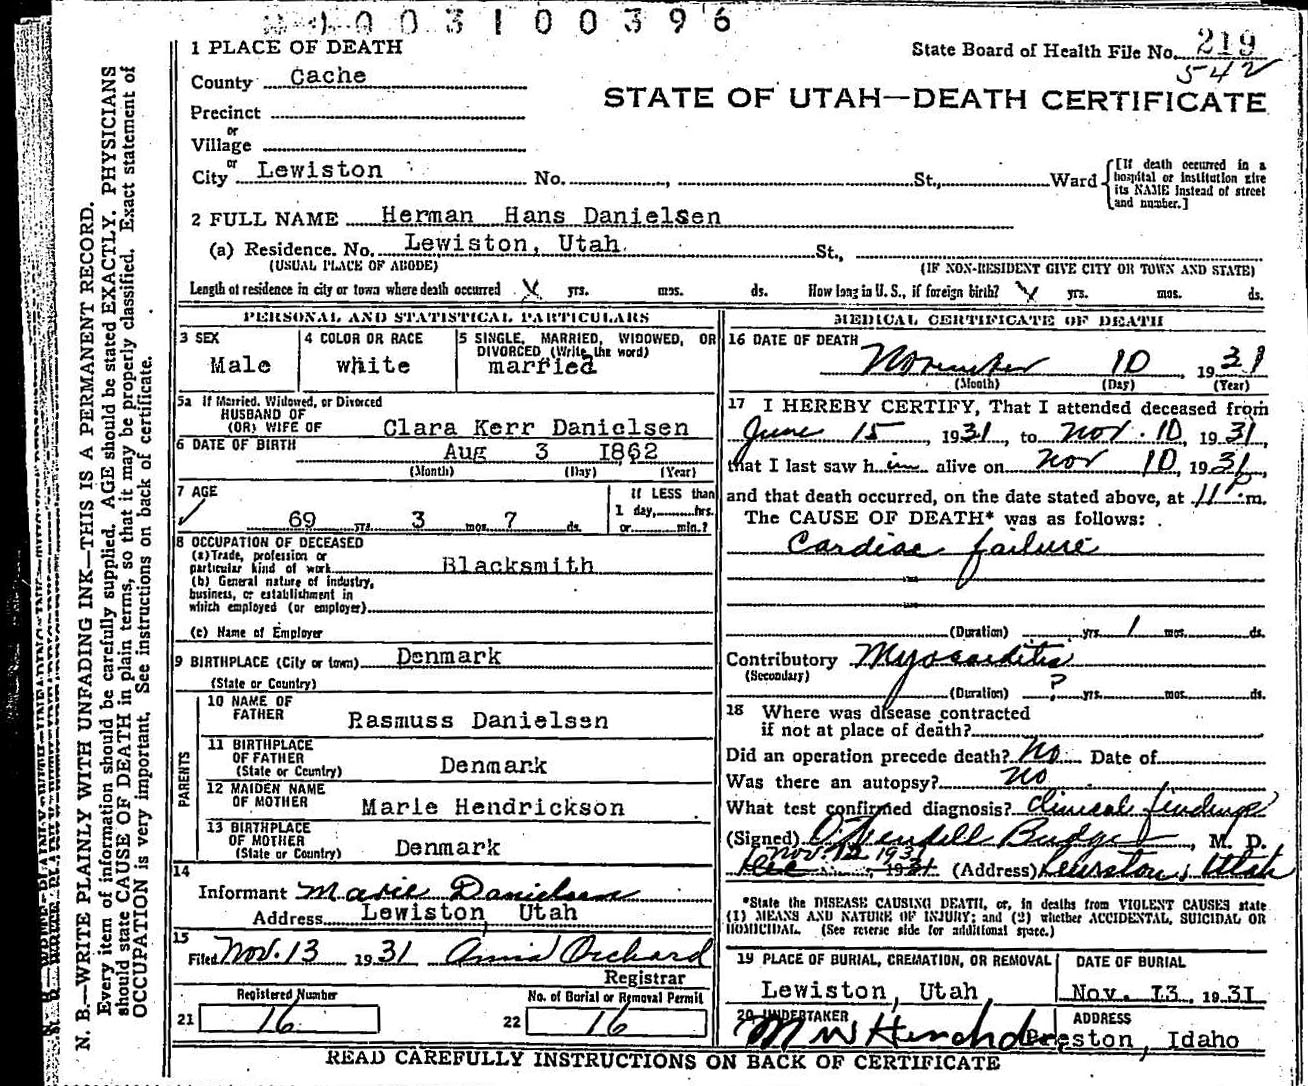 0 0 3 1 0 0 3 9 6
1 PLACE OF DEATH
State Board of Health File No. 219
542
County Cache
STATE OF UTAH—DEATH CERTIFICATE
Precinct
or
Village
or
City Lewiston No. , St., Ward
[If death occurred in a hospital or institution give its NAME instead of street and number.]
2 FULL NAME Herman Hans Danielsen
(a) Residence. No. Lewiston, Utah. St.,
(USUAL PLACE OF ABODE) (IF NON-RESIDENT GIVE CITY OR TOWN AND STATE)
Length of residence in city or town where death occurred yrs. mos. ds. How long in U. S., if foreign birth? yrs. mos. ds.
PERSONAL AND STATISTICAL PARTICULARS
3 SEX
Male
4 COLOR OR RACE
white
5 SINGLE, MARRIED, WIDOWED, OR
DIVORCED (Write the word)
married
5a If Married, Widowed, or Divorced
HUSBAND OF
(OR) WIFE OF Clara Kerr Danielsen
6 DATE OF BIRTH Aug 3 1862
(Month) (Day) (Year)
7 AGE
69 yrs. 3 mos. 7 ds.
If LESS than
1 day, hrs.
or min.?
8 OCCUPATION OF DECEASED
(a) Trade, profession or
particular kind of work Blacksmith
(b) General nature of industry,
business, or establishment in
which employed (or employer)
(c) Name of Employer
9 BIRTHPLACE (City or town) Denmark
(State or Country)
PARENTS
10 NAME OF
FATHER Rasmuss Danielsen
11 BIRTHPLACE
OF FATHER
(State or Country) Denmark
12 MAIDEN NAME
OF MOTHER Marie Hendrickson
13 BIRTHPLACE
OF MOTHER
(State or Country) Denmark
14
Informant Marie Danielsen
Address Lewiston, Utah
15
Filed Nov. 13 1931 Anna Orchard
Registrar
Registered Number
21 16
No. of Burial or Removal Permit
22 16
MEDICAL CERTIFICATE OF DEATH
16 DATE OF DEATH
November 10, 1931
(Month) (Day) (Year)
17 I HEREBY CERTIFY, That I attended deceased from
June 15, 1931, to Nov. 10, 1931,
that I last saw h im alive on Nov 10, 1931,
and that death occurred, on the date stated above, at 11 P.m.
The CAUSE OF DEATH* was as follows:
Cardiac failure
(Duration) yrs. 1 mos. ds.
Contributory Myocarditis
(Secondary)
(Duration) ? yrs. mos. ds.
18 Where was disease contracted
if not at place of death?
Did an operation precede death? No Date of
Was there an autopsy? no
What test confirmed diagnosis? clinical findings
(Signed) O. Wendell Budge, M. D.
Nov. 12 1931
Dec , 1931 (Address) Lewiston, Utah
*State the DISEASE CAUSING DEATH, or, in deaths from VIOLENT CAUSES state
(1) MEANS AND NATURE OF INJURY; and (2) whether ACCIDENTAL, SUICIDAL OR
HOMICIDAL. (See reverse side for additional space.)
19 PLACE OF BURIAL, CREMATION, OR REMOVAL
Lewiston, Utah
DATE OF BURIAL
Nov. 13, 1931
20 UNDERTAKER
M W
ADDRESS
Preston, Idaho
READ CAREFULLY INSTRUCTIONS ON BACK OF CERTIFICATE
N. B.—WRITE PLAINLY WITH UNFADING INK—THIS IS A PERMANENT RECORD.
Every item of information should be carefully supplied. AGE should be stated EXACTLY. PHYSICIANS
should state CAUSE OF DEATH in plain terms, so that it may be properly classified. Exact statement of
OCCUPATION is very important. See instructions on back of certificate.